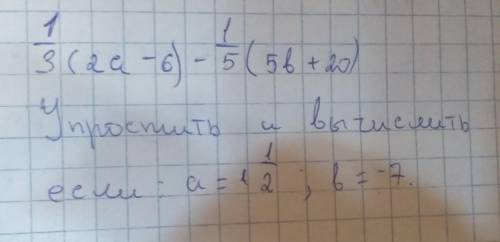 1/3 (2a - 6) - 1/5 (5b + 20)
Упростить и вычислить
если: a = 1 1/2; b = -7.